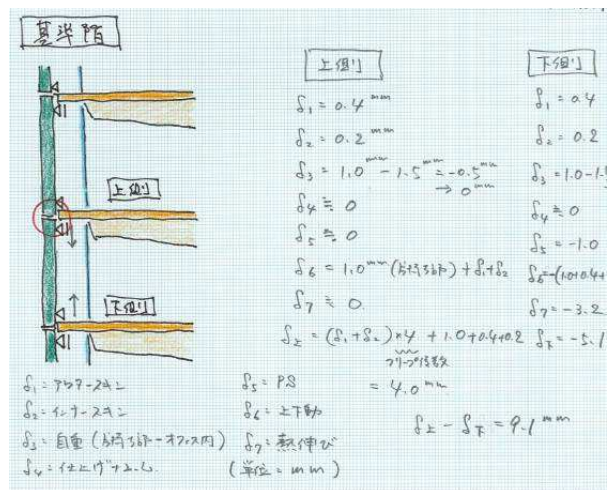 基準階
上側
下側
上側
δ₁ = 0.4 mm
δ₂ = 0.2 mm
δ₃ = 1.0 mm - 1.5 mm = -0.5 mm
→ 0 mm
δ₄ ≒ 0
δ₅ ≒ 0
δ₆ = 1.0 mm + δ₁+δ₂
δ₇ ≒ 0
δ上 = (δ₁+δ₂)×4 + 1.0+0.4+0.2
クリープ係数
= 4.0 mm
下側
δ₁ = 0.4
δ₂ = 0.2
δ₃ = 1.0-1.
δ₄ ≒ 0
δ₅ = -1.0
δ₆ = -(1.0+0.4+
δ₇ = -3.2
δ下 = -5.1
δ上 - δ下 = 9.1 mm
δ₁: アウタースキン
δ₂: インナースキン
δ₃: 自重 (オフィス内)
δ₄: 仕上げ
δ₅: PS
δ₆: 上下動
δ₇: 熱伸び
(単位 = mm)